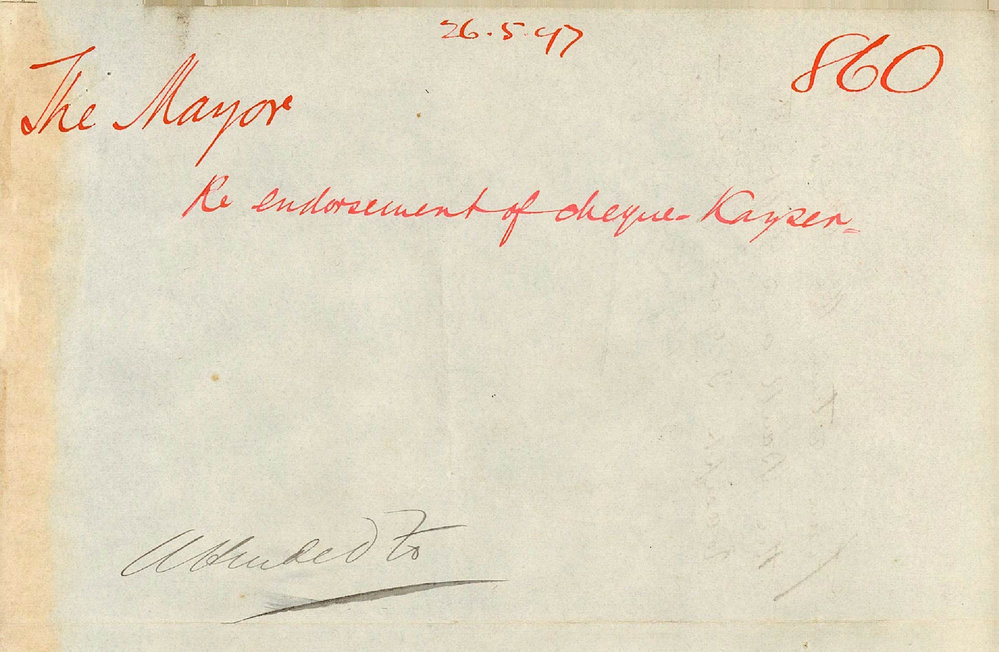 26.5.97
860
The Mayor
Re endorsement of cheque - Kayser =
Attended to